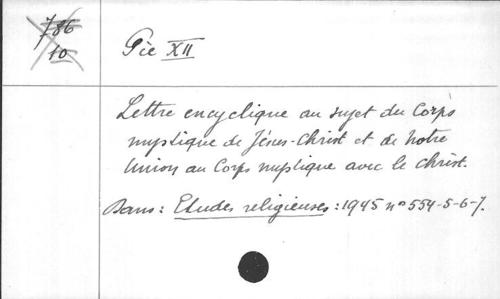 786
10
Pie XII
Lettre encyclique au sujet du Corps
mystique de Jésus-Christ et de notre
Union au Corps mystique avec le Christ.
Dans: Etudes religieuses: 1945 n° 554-5-6-7.